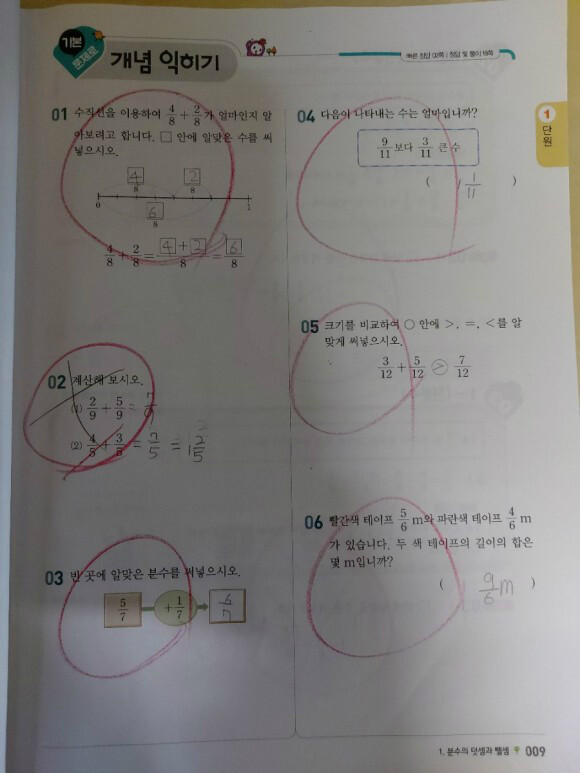 기본
문제로
개념 익히기
빠른 정답 02쪽 | 정답 및 풀이 16쪽
01 수직선을 이용하여 4/8 + 2/8 가 얼마인지 알
아보려고 합니다. □ 안에 알맞은 수를 써
넣으시오.
4/8 2/8
0 1
6/8
4/8 + 2/8 = 4 + 2/8 = 6/8
02 계산해 보시오.
(1) 2/9 + 5/9 = 7/9
(2) 4/5 + 3/5 = 7/5 = 1 2/5
03 빈 곳에 알맞은 분수를 써넣으시오.
5/7 + 1/7 6/7
04 다음이 나타내는 수는 얼마입니까?
9/11 보다 3/11 큰 수
( 1 1/11 )
05 크기를 비교하여 ○ 안에 >, =, <를 알
맞게 써넣으시오.
3/12 + 5/12 > 7/12
06 빨간색 테이프 5/6 m와 파란색 테이프 4/6 m
가 있습니다. 두 색 테이프의 길이의 합은
몇 m입니까?
( 9/6 m )
1
단원
1. 분수의 덧셈과 뺄셈 009